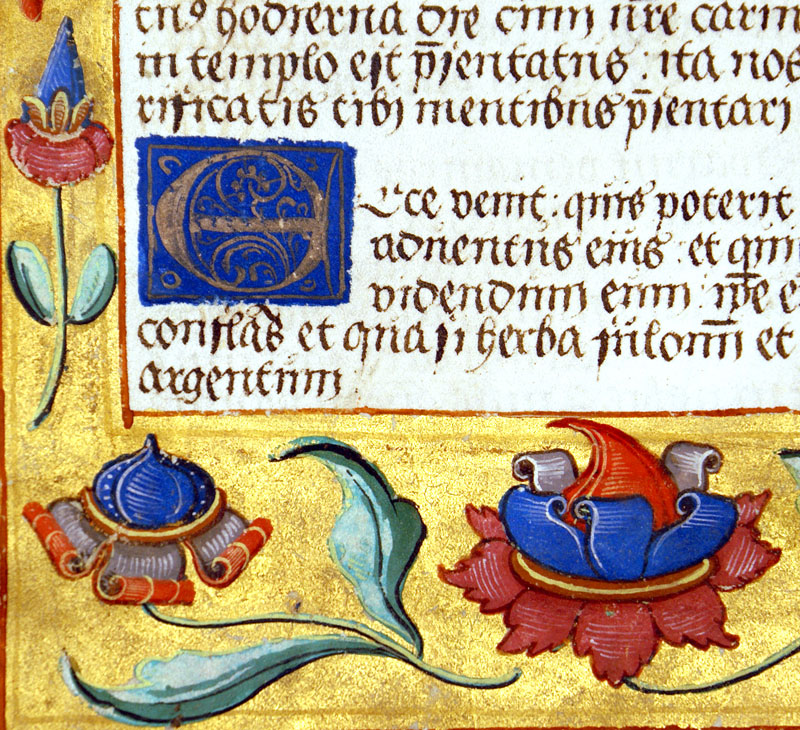 cu⁹ hodierna die cum nr̄e carni
in templo est p̄sentatus : ita nos
rificatis tibi mentibus p̄sentari
Ecce venit : quis poterit
aduentus eius : et qui
videndum eum : ip̄e e
conflās et quasi herba fulonū et
argentum